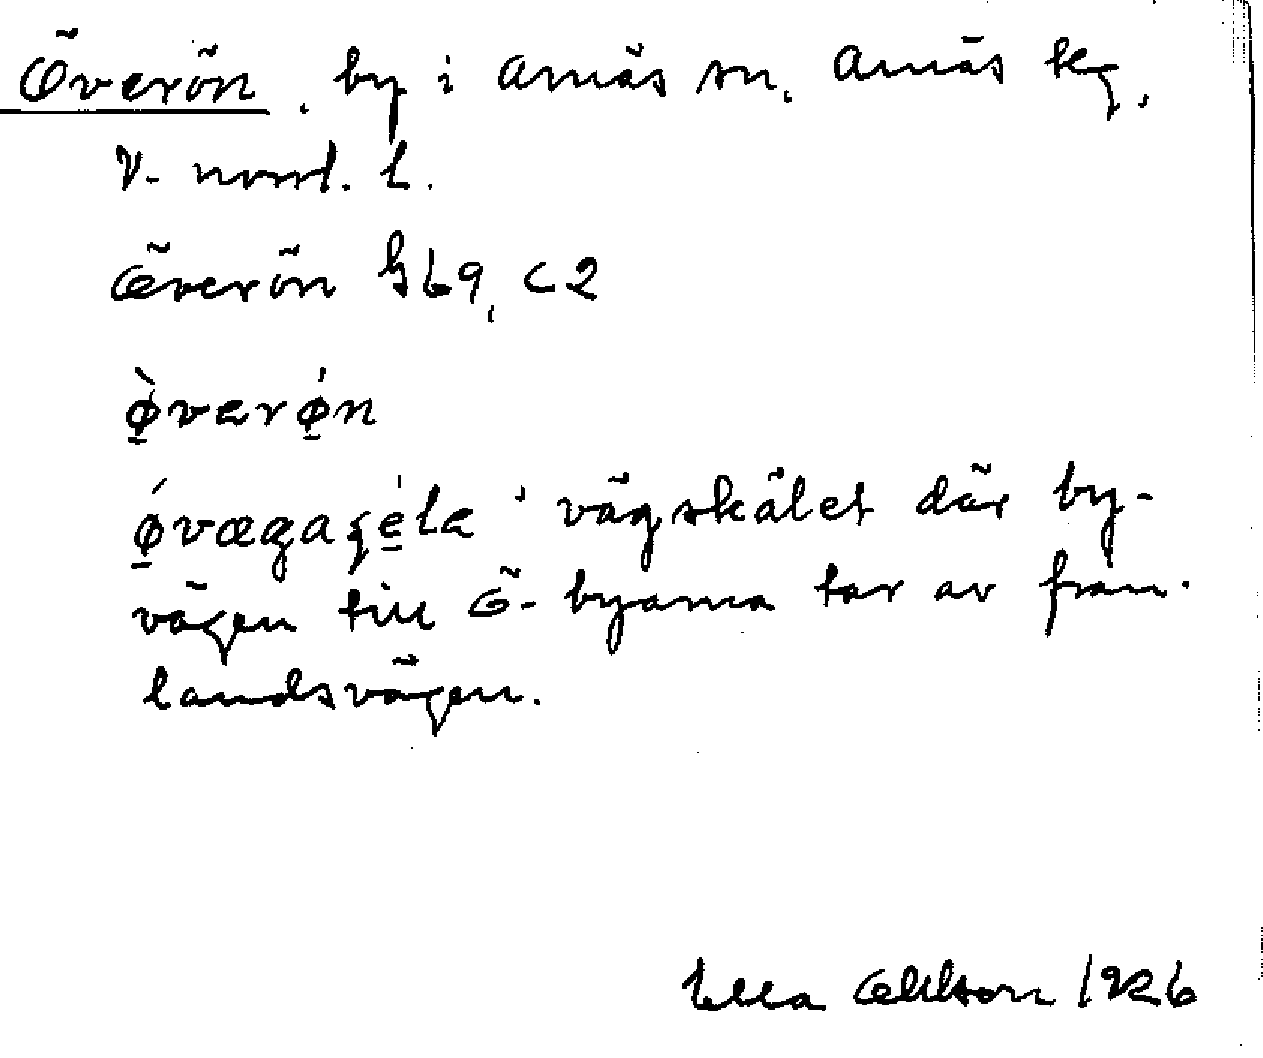 Överön, by i Arnäs sn, Arnäs tg,
V. nord. l.
Överön G69, C2
ø̀værǿn
ǿvægaʂéla 'vägskälet där by-
vägen till Ö-byarna tar av från
landsvägen.
Ella Ohlson 1926